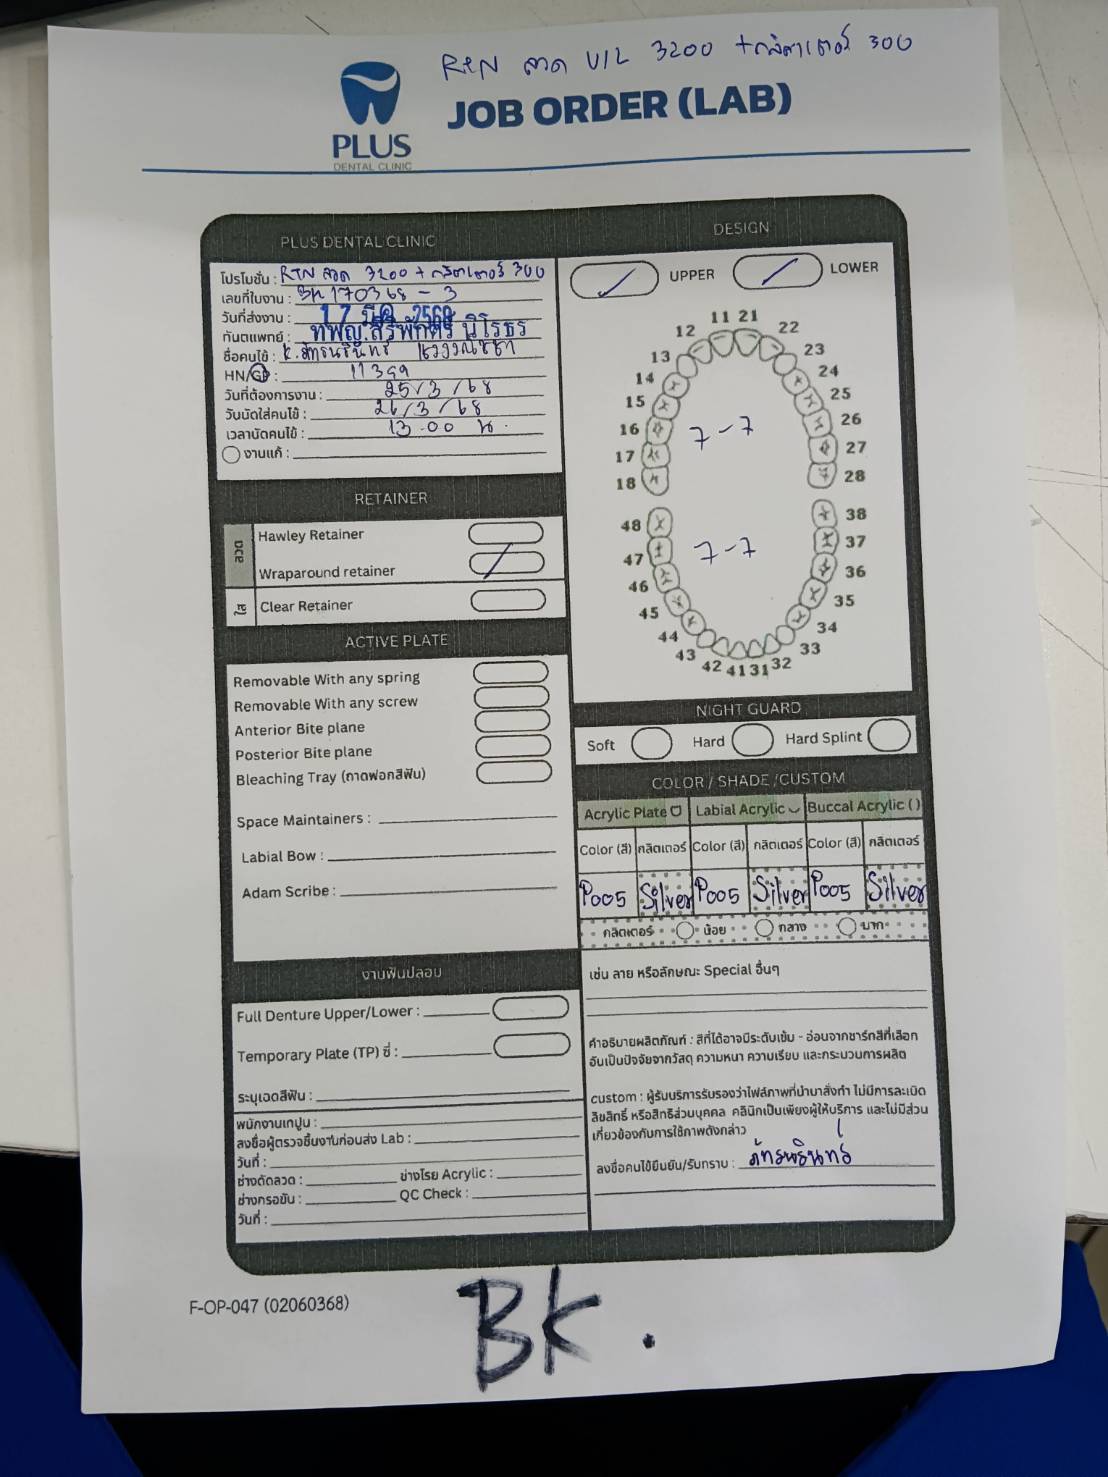 RtN ลวด U/L 3200 + กลิตเตอร์ 300
PLUS
DENTAL CLINIC
JOB ORDER (LAB)
PLUS DENTAL CLINIC
โปรโมชั่น : RTN ลวด 3200 + กลิตเตอร์ 300
เลขที่ใบงาน : BK170368 - 3
วันที่ส่งงาน : 17 มี.ค. 2568
ทันตแพทย์ : ทพญ.สิริพักตร์ นิโรธร
ชื่อคนไข้ : K.
HN/GP : 11399
วันที่ต้องการงาน : 25/3/68
วันนัดใส่คนไข้ : 26/3/68
เวลานัดคนไข้ : 13.00 น.
งานแก้ :
RETAINER
ลวด
Hawley Retainer
Wraparound retainer
ใส
Clear Retainer
ACTIVE PLATE
Removable With any spring
Removable With any screw
Anterior Bite plane
Posterior Bite plane
Bleaching Tray (ถาดฟอกสีฟัน)
Space Maintainers :
Labial Bow :
Adam Scribe :
งานฟันปลอม
Full Denture Upper/Lower :
Temporary Plate (TP) ซี่ :
ระบุเฉดสีฟัน :
พนักงานเทปูน :
ลงชื่อผู้ตรวจชิ้นงานก่อนส่ง Lab :
วันที่ :
ช่างดัดลวด : ช่างโรย Acrylic :
ช่างกรอขัน : QC Check :
วันที่ :
DESIGN
UPPER LOWER
11 21
12 22
13 23
14 24
15 25
16 26
17 27
18 28
7-7
48 38
47 37
46 36
45 35
44 34
43 33
42 41 31 32
7-7
NIGHT GUARD
Soft Hard Hard Splint
COLOR / SHADE /CUSTOM
Acrylic Plate Labial Acrylic Buccal Acrylic ( )
Color (สี) กลิตเตอร์ Color (สี) กลิตเตอร์ Color (สี) กลิตเตอร์
P005 Silver P005 Silver P005 Silver
กลิตเตอร์ น้อย กลาง มาก
เช่น ลาย หรือลักษณะ Special อื่นๆ
คำอธิบายผลิตภัณฑ์ : สีที่ได้อาจมีระดับเข้ม - อ่อนจากชาร์ทสีที่เลือก
อันเป็นปัจจัยจากวัสดุ ความหนา ความเรียบ และกระบวนการผลิต
custom : ผู้รับบริการรับรองว่าไฟล์ภาพที่นำมาสั่งทำ ไม่มีการละเมิด
ลิขสิทธิ์ หรือสิทธิส่วนบุคคล คลินิกเป็นเพียงผู้ให้บริการ และไม่มีส่วน
เกี่ยวข้องกับการใช้ภาพดังกล่าว
ลงชื่อคนไข้ยืนยัน/รับทราบ : ภัทรนรินทร์
F-OP-047 (02060368)
BK.